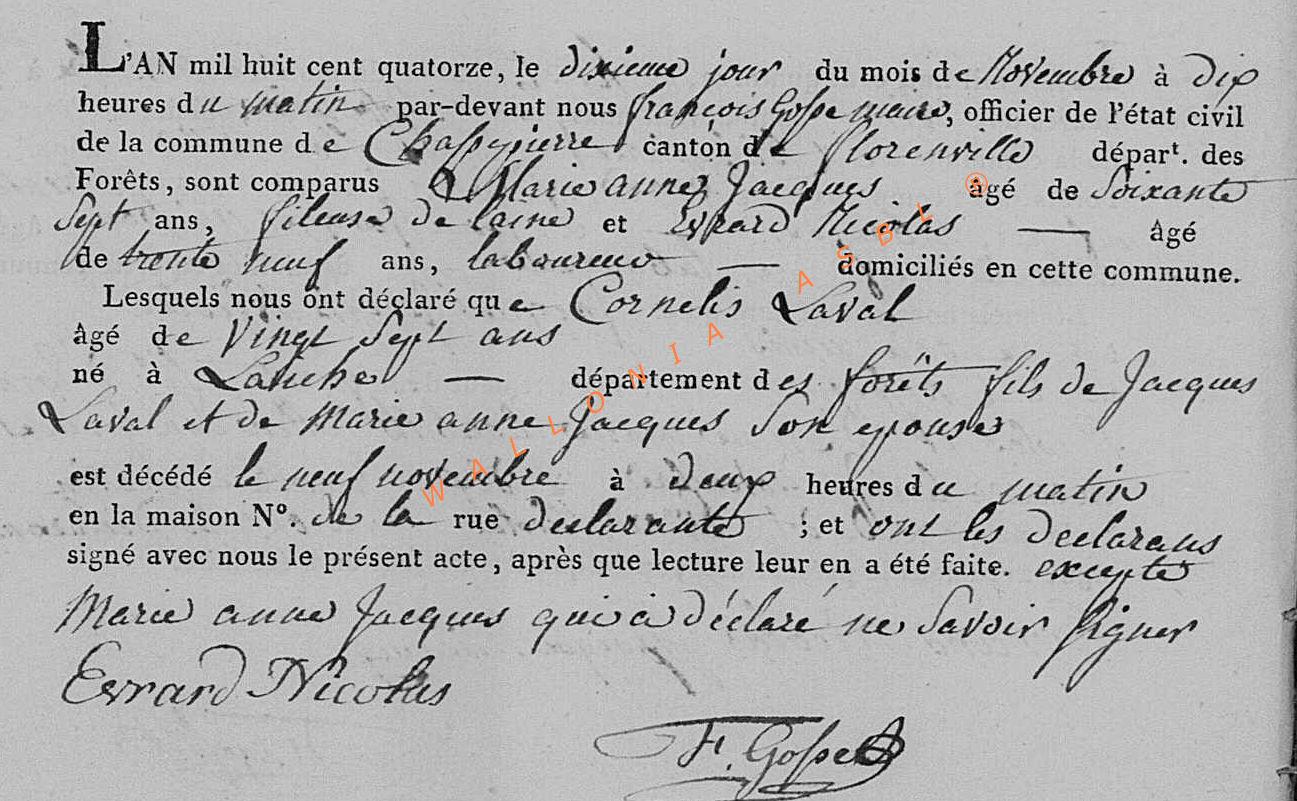 L'AN mil huit cent quatorze, le dixieme jour du mois de Novembre à dix
heures du matin par-devant nous françois Gosse maire, officier de l'état civil
de la commune de Chassepierre canton de florenville départ. des
Forêts, sont comparus Marie anne Jacques âgé de Soixante
Sept ans, fileuse de laine et Evrard Nicolas — âgé
de trente neuf ans, laboureur — domiciliés en cette commune.
Lesquels nous ont déclaré que Cornelis Laval
âgé de Vingt Sept ans
né à Laiche — département des forêts fils de Jacques
Laval et de Marie anne Jacques Son epouse
est décédé le neuf novembre à deux heures du matin
en la maison N°. de la rue declarante ; et ont les declarans
signé avec nous le présent acte, après que lecture leur en a été faite. excepté
Marie anne Jacques qui a déclaré ne Savoir signer
Evrard Nicolas
F. Gosse
WALLONIA ASBL ®